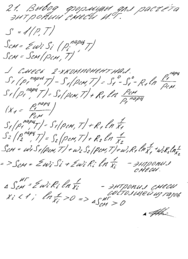 21. Вывод формулы для расчёта
энтропии смеси ИГ.
S = f(P, T)
Sсм = Σwi Si (Pi^парц, T)
Sсм = Sсм(Pсм, T)
S смеси 2-компонентная
S1(P1^парц, T) - S1(Pсм, T) = S1^0 - S1^0 - R1 ln P1^парц/Pсм
S1(P1^парц, T) = S1(Pсм, T) + R1 ln Pсм/P1^парц
(x1 = P1^парц/Pсм)
S1(P1^парц, T) = S1(Pсм, T) + R1 ln 1/x1
S2(P2^парц, T) = S2(Pсм, T) + R2 ln 1/x2
Sсм = w1 S1(Pсм, T) + w2 S2(Pсм, T) + w1 R1 ln 1/x1 + w2 R2 ln 1/x2
=> Sсм = Σwi Si + Σwi Ri ln 1/xi - энтропия
смеси
Δ Sсм^ИГ = Σwi Ri ln 1/xi - энтропия смешения
газов
xi < 1; ln 1/xi > 0 => Δ Sсм^ИГ > 0